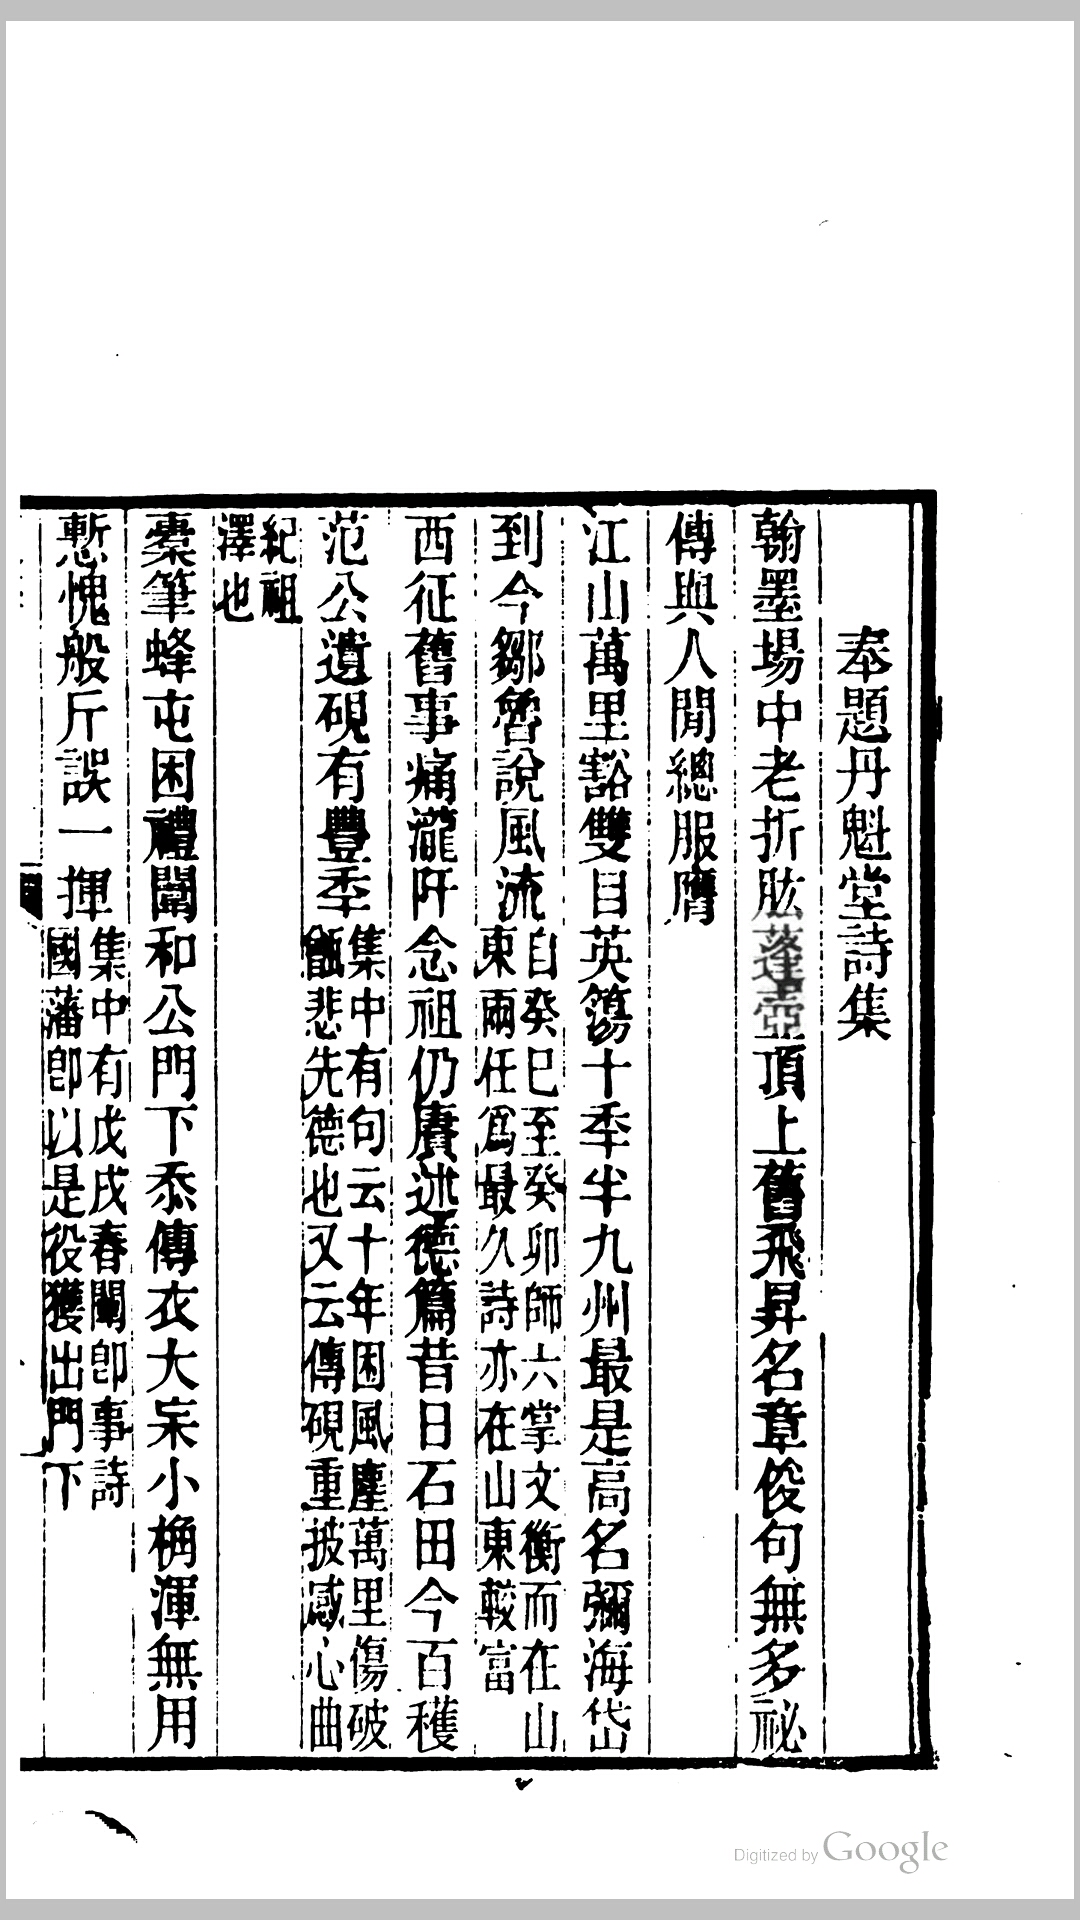 奉題丹魁堂詩集
翰墨場中老折肱蓬壺頂上舊飛昇名章俊句無多祕
傳與人閒總服膺
江山萬里豁雙目英簜十季半九州最是高名彌海岱
到今鄒魯說風流自癸巳至癸卯師六掌文衡而在山
東兩任爲最久詩亦在山東較富
西征舊事痛瀧阡念祖仍賡述德篇昔日石田今百穫
范公遺硯有豐季集中有句云十年困風塵萬里傷破
甑悲先德也又云傳硯重披感心曲
紀祖
澤也
橐筆蜂屯困禮闈和公門下忝傳衣大宗小桷渾無用
慙愧般斤誤一揮集中有戊戌春闈卽事詩
國藩卽以是役獲出門下
Digitized by Google